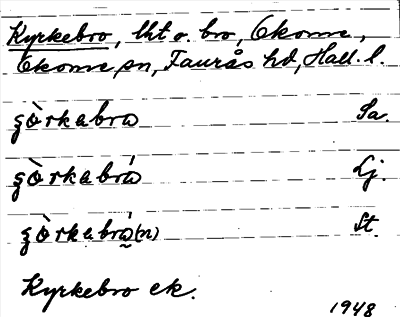 Kyrkebro, lht o. bro, Okome,
Okome sn, Faurås hd, Hall. l.
ʒòrkabro Sa.
ʒòrkabró Lj.
ʒòrkabró̰(n) St.
Kyrkebro ek.
1948